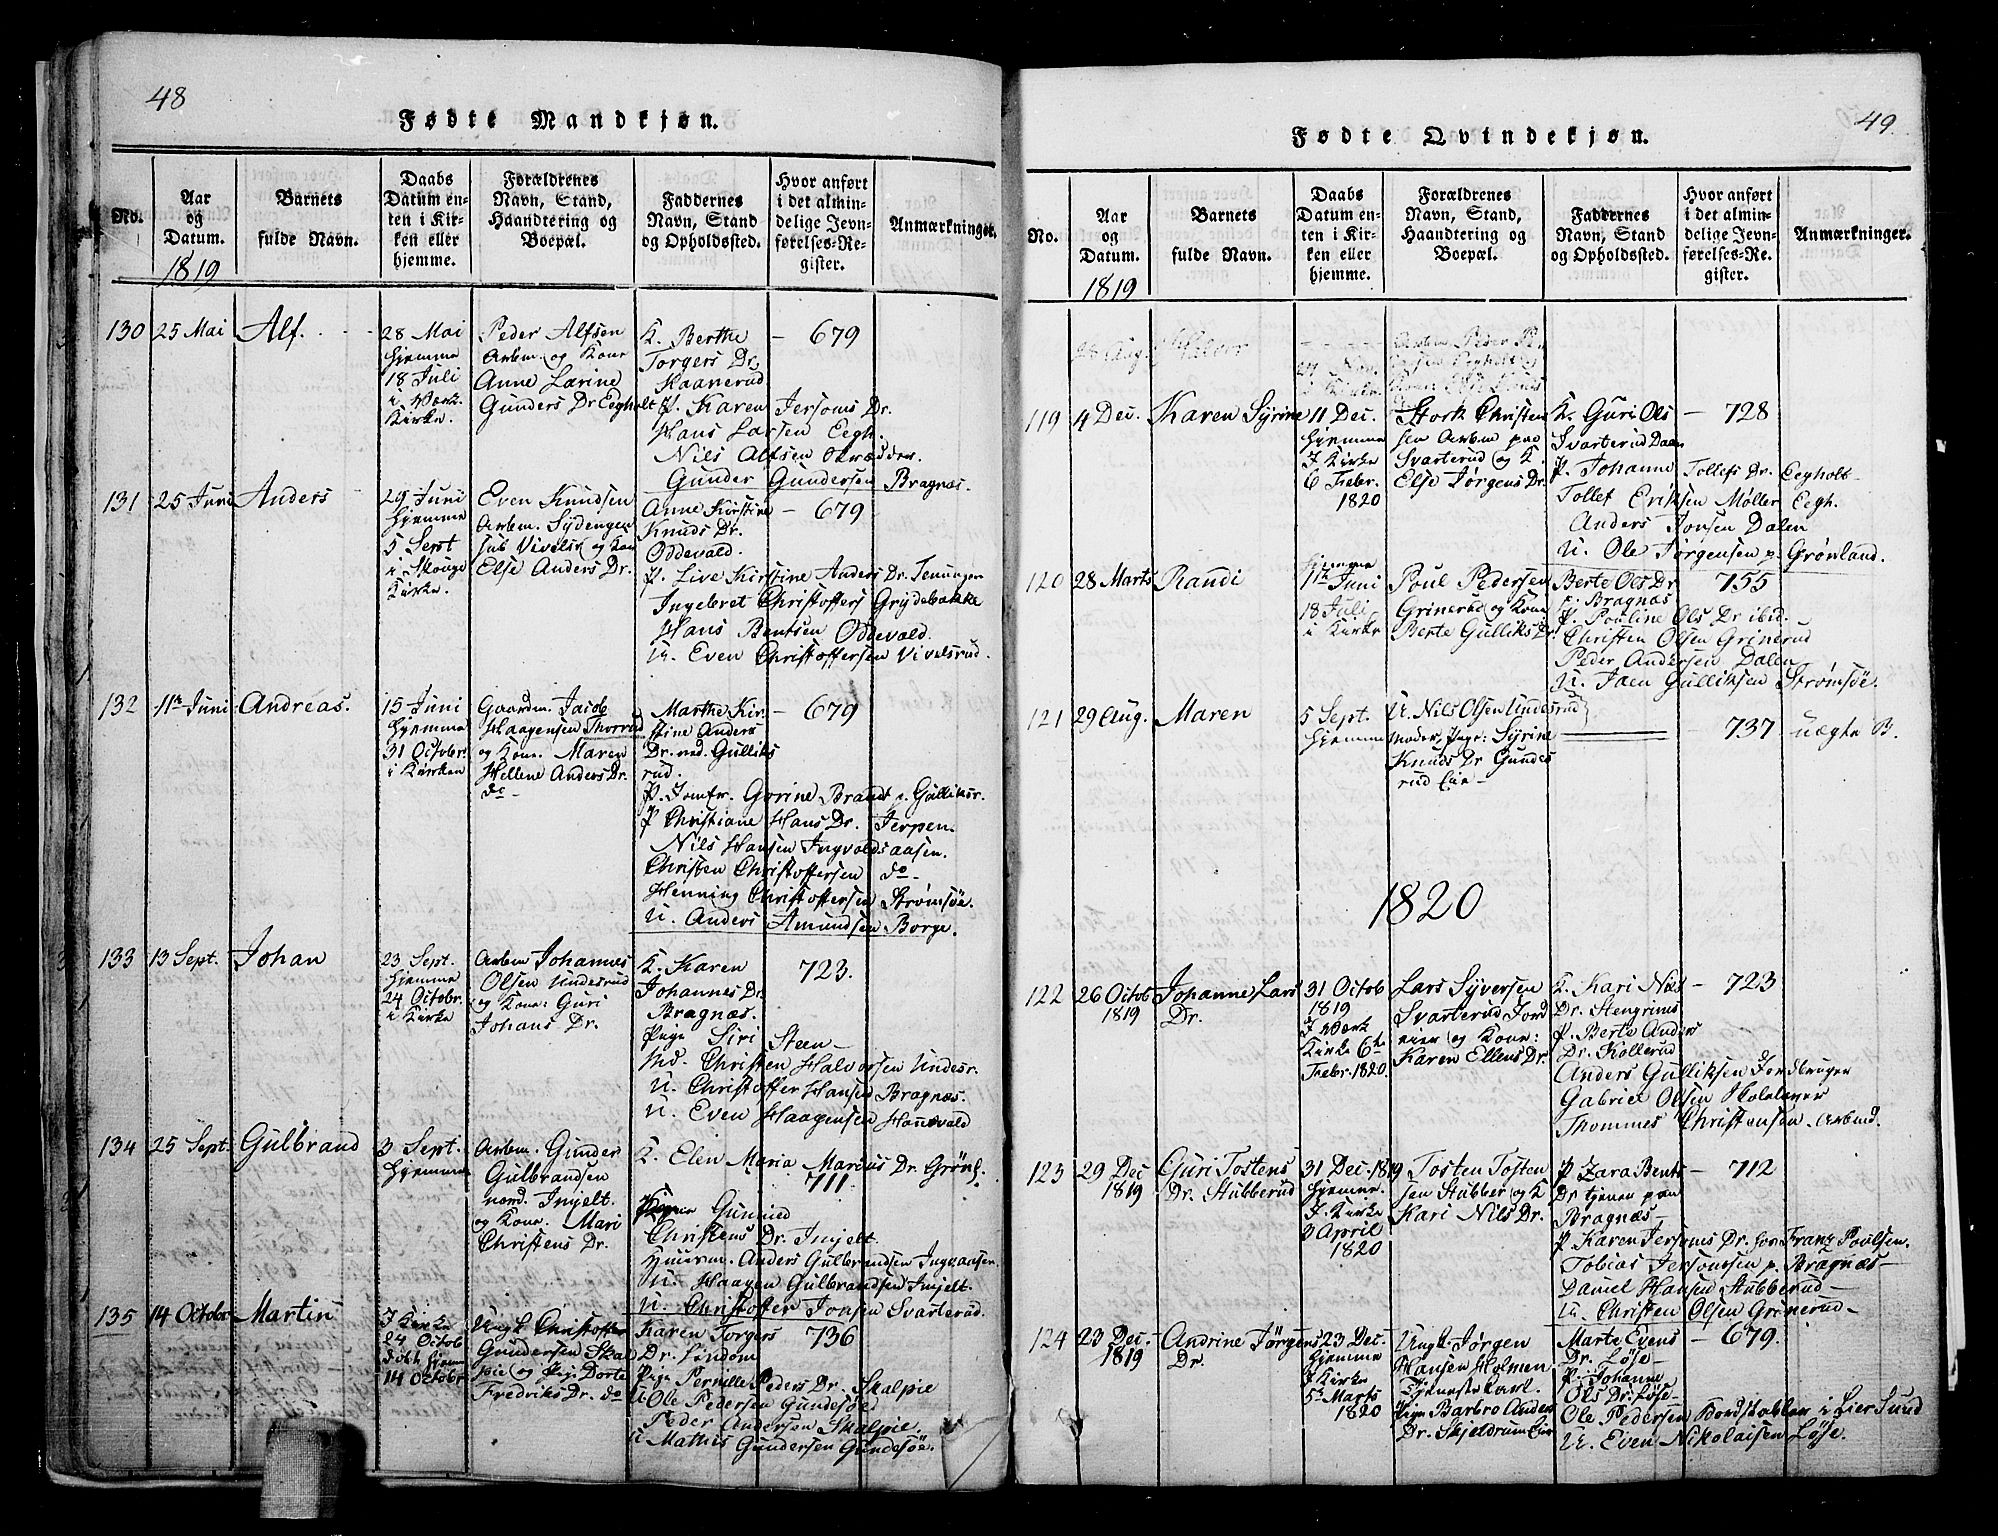 48
Fødte Mandkjøn.
No.
Aar
og
Datum.
1819
Barnets
fulde Navn.
Daabs
Datum en-
ten i Kir-
ken eller
hjemme.
Forældrenes
Navn, Stand,
Haandtering og
Boepæl.
Faddernes
Navn, Stand
og Opholdssted.
Hvor anført
i det almin-
delige Jevn-
førelses-Re-
gister.
Anmærkninger.
130
25 Mai
Alf.
28 Mai
hjemme
18 Juli
i Værk
Kirke.
Peder Alfsen
Arbm. og Kone
Anne Larine
Gunders Dr Eegholt
K. Berthe
Torgers Dr.
Haanerud
P. Karen Jersoms Dr.
Hans Larsen Eegh.
Nils Alfsen Skrædder.
Gunder Gundersen Bragnæs.
679
131
25 Juni
Anders
29 Juni
hjemme
5 Sept
i Skouge
Kirke.
Even Knudsen
Arbm. Sydengen
og Kone
Else Anders Dr.
Anne Kirstine
Knuds Dr.
Oddevald.
P. Live Kirstine Anders Dr.
Ingebret Christoffers Grydebække
Hans Bentsen Oddevald.
U. Even Christoffersen Vivelsrud.
679
132
11te Juni
Andreas.
15 Juni
hjemme
31 Octobr.
i Kirken
Gaardm. Jacob
Haagensen Thorrud
og Kone. Maren
Hellene Anders Dr.
do
Marthe Kir-
stine Anders
Dr. ned. Gulliks
rud.
P. Jomfr. Gorine Brandt p. Gulliksr.
P Christiane Hans Dr. Jerpen.
Nils Hansen Ingvaldsaasen.
Christen Christoffersen do
Henning Christoffersen Strømsøe.
U. Anders Amundsen Borge.
679
133
13 Sept.
Johan
23 Sept.
hjemme
24 Octobr.
i Kirke
Arbm Johannes
Olsen Undesrud
og Kone: Guri
Johans Dr.
K. Karen
Johannes Dr.
Bragnæs.
Pige Siri Steen
Md. Christen Halvorsen Undesr.
U. Christoffer Hansen Bragnæs.
U. Even Haagensen Hanevald
723.
134
25 Sept.
Gulbrand
3 Sept.
hjemme
Arbm. Gunder
Gulbrandsen
nord. Injelt.
og Kone. Mari
Christens Dr.
K. Elen Maria Marius Dr. Grønl.
711
Gunnied
Christens Dr. Injelt
Huusm. Anders Gulbrandsen Ingvaasen
U. Haagen Gulbrandsen Injelt.
U. Christoffer Jonsen Svarterud.
135
14 Octobr
Martin
I Kirke
24 Octob
døbt hjemme
14 Octobr
Ungk Christoffer
Gundersen Skal
pie og Pige Dorte
Fredriks Dr. do
Karen Torgers
Dr. Lindom
Pige Pernille Peders Dr. Skalpie
U Ole Pedersen Gundesøe
Peder Andersen Skalpie.
U Mathis Gundersen Gundesøe.
736
49.
Fødte Qvindekjøn.
No.
Aar
og
Datum.
1819
Barnets
fulde Navn.
Daabs
Datum en-
ten i Kir-
ken eller
hjemme.
Forældrenes
Navn, Stand,
Haandtering og
Boepæl.
Faddernes
Navn, Stand
og Opholdssted.
Hvor anført
i det almin-
delige Jevn-
førelses-Re-
gister.
Anmærkninger.
Aug.
Halvor
i Kirke
Arbm Peder
119
4 Dec.
Karen Syrine
11 Dec.
hjemme
I Kirke
6 Febr.
1820
Stork Christen
sen Arbm paa
Svarterud og K.
Else Jørgens Dr.
K. Guri Ols
Svarterud Daan
P. Johanne Tollefs Dr. Eegholt
Tollef Eriksen Møller Eegh.
Anders Jonsen Dalen
U. Ole Jørgensen p. Grønland.
728
120
28 Marts
Randi
hjemme
11te Juni
18 Juli
i Kirke
Poul Pedersen
Grinerud og Kone
Berte Gulliks Dr
Berte Ols Dr
p. Bragnæs
P. Pouline Ols Dr ibid.
Christen Olsen Grinerud
Peder Andersen Dalen
U. Joen Gulliksen Strømsøe.
755
121
29 Aug.
Maren
5 Sept.
hjemme
U. Nils Olsen Undesrud
Moder, Pige: Syrine
Knuds Dr Gundes
rud Eie
737
uægte B.
1820
122
26 Octob
1819
Johanne Lars
Dr.
31 Octob
1819
I Værk
Kirke 6te
Febr. 1820.
Lars Syversen
Svarterud Jord
eier og Kone:
Karen Ellens Dr.
K. Kari Niels
Dr. Stengrims
P. Berte Anders
Dr. Kollerud
Anders Gulliksen Jordbruger
Gabriel Olsen Skolelærer
Thommes Christensen. Arbmd.
723
123
29 Dec
1819
Guri Tostens
Dr. Stubberud
31 Dec. 1819
hjemme.
I. Kirke
3 April
1820
Tosten Tosten
sen Stubber og K
Kari Nils Dr.
P Zara Bents
Dr tjener paa
Bragnæs
P. Karen Jersoms Dr. hos Franz Poulsen.
Tobias Jersomsen p. Bragnæs
Daniel Hansen Stubberud
U. Christen Olsen Grinerud
712
124
23 Dec.
1819
Andrine Jørgens
Dr.
23 Dec.
hjemme
I Kirke
5te Marts
1820
Ungk. Jørgen
Hansen Holmen
Tjenestekarl.
Pige Barbro Anders
Dr. Skjeldrum Eie
Marte Evens
Dr. Løse
P. Johanne
Ols Dr. Løse
Ole Pedersen Bordstabler i Lier Sund
U. Even Nikolaisen Løse.
679.